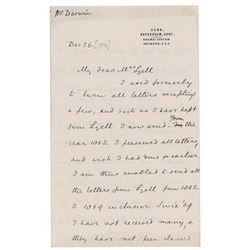 Mr Darwin
DOWN,
BECKENHAM, KENT.
RAILWAY STATION
ORPINGTON. S.E.R.
Dec 26. [1872]
My dear Mrs Lyell
I used formerly to
burn all letters excepting
a few, and such as I have kept
from Lyell I now send. From
the
year 1862 I preserved all letters,
and wish I had done so earlier
I am thus enabled to send all
the letters from Lyell from 1862
to 1869 inclusive. Since 69
I have not received many, &
they have not been